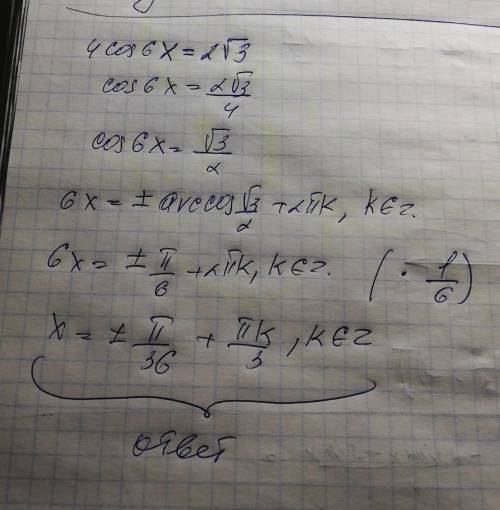 4cos6x=2√3
cos6x=2√3/4
cos6x=√3/2
6x=±arccos√3/2+2πk, k∈z.
6x=±π/6+2πk, k∈z. (·1/6)
x=±π/36+πk/3, k∈z
ответ